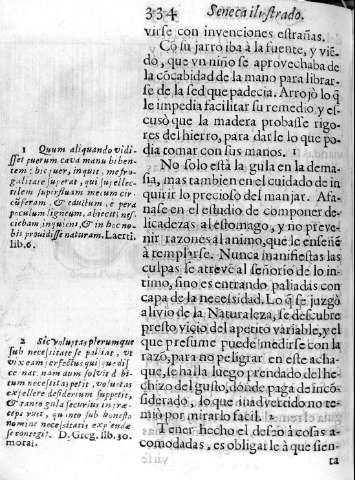 334 Seneca ilustrado.
virse con invenciones estrañas.
Cō su jarro iba à la fuente, y viē-
do, que vn niño se aprovechaba de
la cōcabidad de la mano para librar-
se de la sed que padecia. Arrojò lo q̄
le impedia facilitar su remedio, y es-
cusò que la madera probasse rigo-
res del hierro, para darle lo que po-
dia tomar con sus manos. 1
No solo està la gula en la dema-
sia, mas tambien en el cuidado de in
quirir lo precioso del manjar. Afa-
nase en el estudio de componer de-
licadezas al estomago, y no preve-
nir razones al animo, que le enseñē
à templarse. Nunca manifiestas las
culpas se atreve al señorio de lo in-
timo, sino es entrando paliadas con
capa de la necessidad. Lo q̄ se juzgò
alivio de la Naturaleza, se descubre
presto vicio del apetito variable, y el
que presume puede medirse con la
razō, para no peligrar en este acha-
que, se halla luego prendado del he-
chizo del gusto, donde paga de incō-
siderado, lo que inadvertido no te-
miò por mirarlo facil. 2
Tener hecho el deseo à cosas a-
comodadas, es obligarle à que sien-
ta
1 Quum aliquando vidi-
sset puerum cava manu biben-
tem: hic puer, inquit, me fru-
galitate superat, qui supellec-
tilem supervacuam mecum cir-
cūferam, & eductum è pera
poculum ligneum, abiecit: nes-
ciebam inquiens, & in hoc no-
bis providisse naturam. Laerti.
lib.6.
2 Sic voluptas plerumque
sub necessitate se paliat, vt
vix eam perfectus quisque dis-
cernat. nam dum solvit debi-
tum necessitas petit, voluptas
expellere desiderium suppetit,
& tanto gula securius in præ-
ceps ruit, quanto sub honesto
nomine necessitatis explendæ
se contegit. D. Greg. lib. 30.
moral.